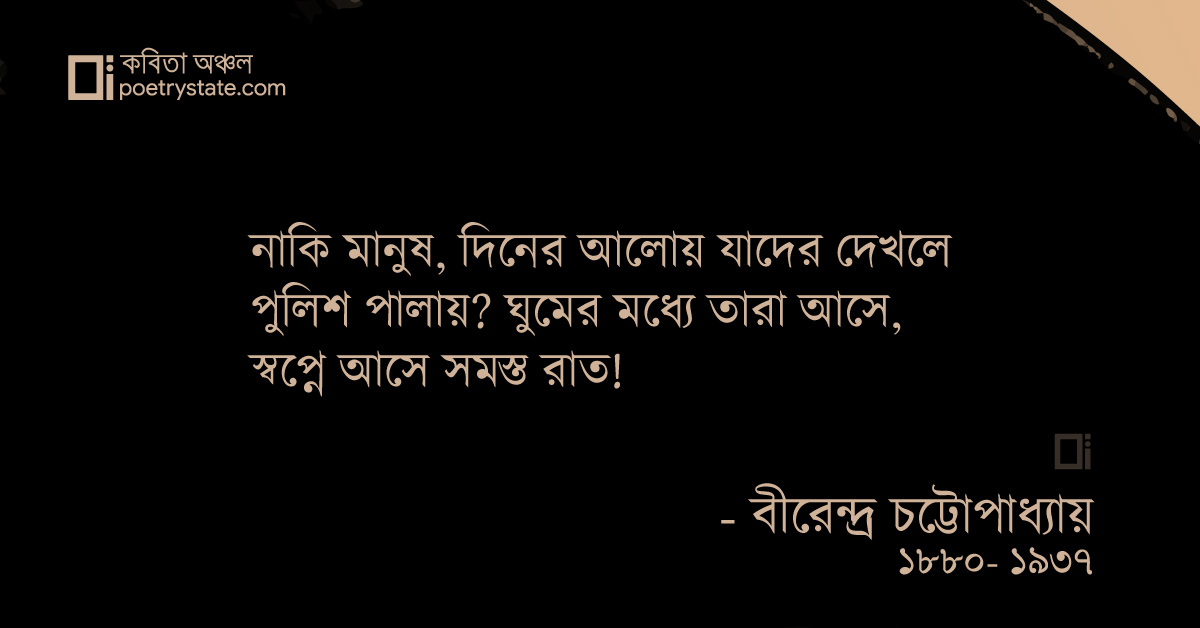 কবিতা অঞ্চল
poetrystate.com
নাকি মানুষ, দিনের আলোয় যাদের দেখলে
পুলিশ পালায়? ঘুমের মধ্যে তারা আসে,
স্বপ্নে আসে সমস্ত রাত!
- বীরেন্দ্র চট্টোপাধ্যায়
১৮৮০- ১৯৩৭